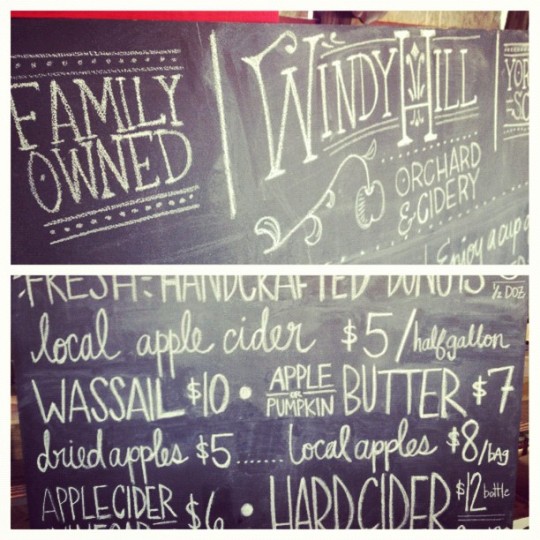 FAMILY OWNED
WINDY HILL
ORCHARD & CIDERY
Enjoy a cup
FRESH HANDCRAFTED DONUTS
1/2 DOZ
local apple cider $5/half gallon
WASSAIL $10 • APPLE OR PUMPKIN BUTTER $7
dried apples $5 ....... local apples $8/bag
APPLE CIDER VINEGAR $6 • HARD CIDER $12 bottle